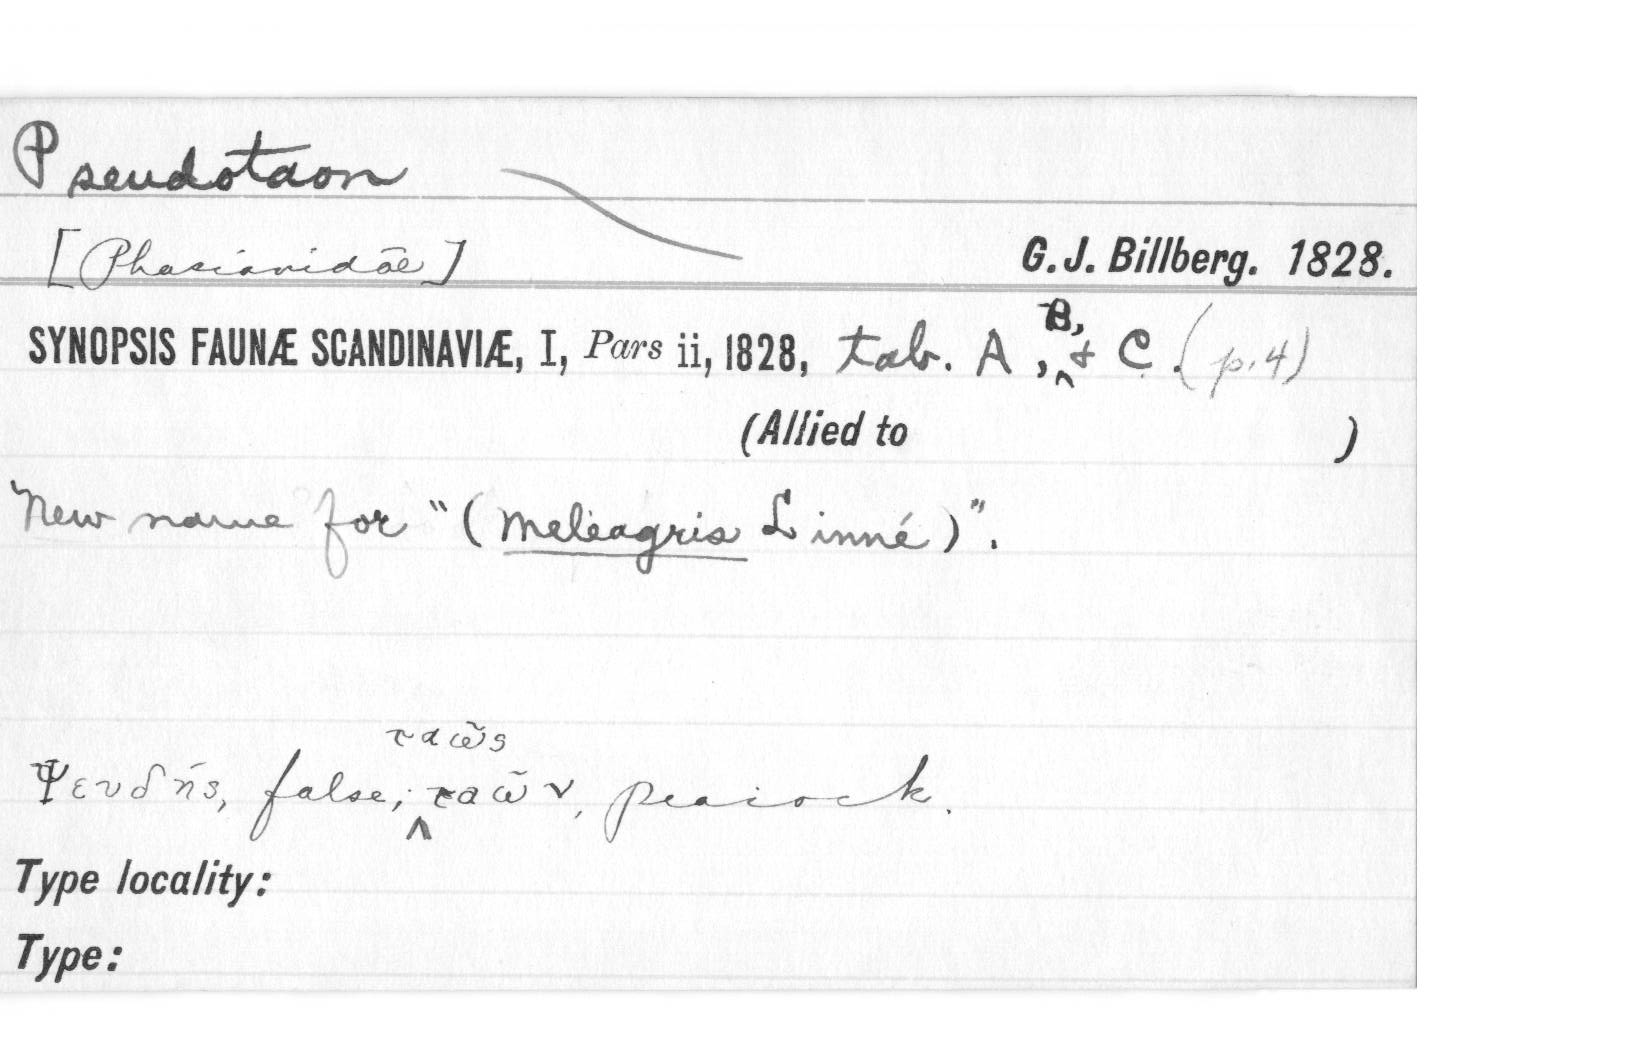 Pseudotaon
[Phasianidae]
G. J. Billberg. 1828.
SYNOPSIS FAUNÆ SCANDINAVIÆ, I, Pars ii, 1828, tab. A, B, & C. (p.4)
(Allied to )
New name for "(Meleagris Linné)".
Ψευδής, false; ταῶς ταῶν, peacock.
Type locality:
Type: